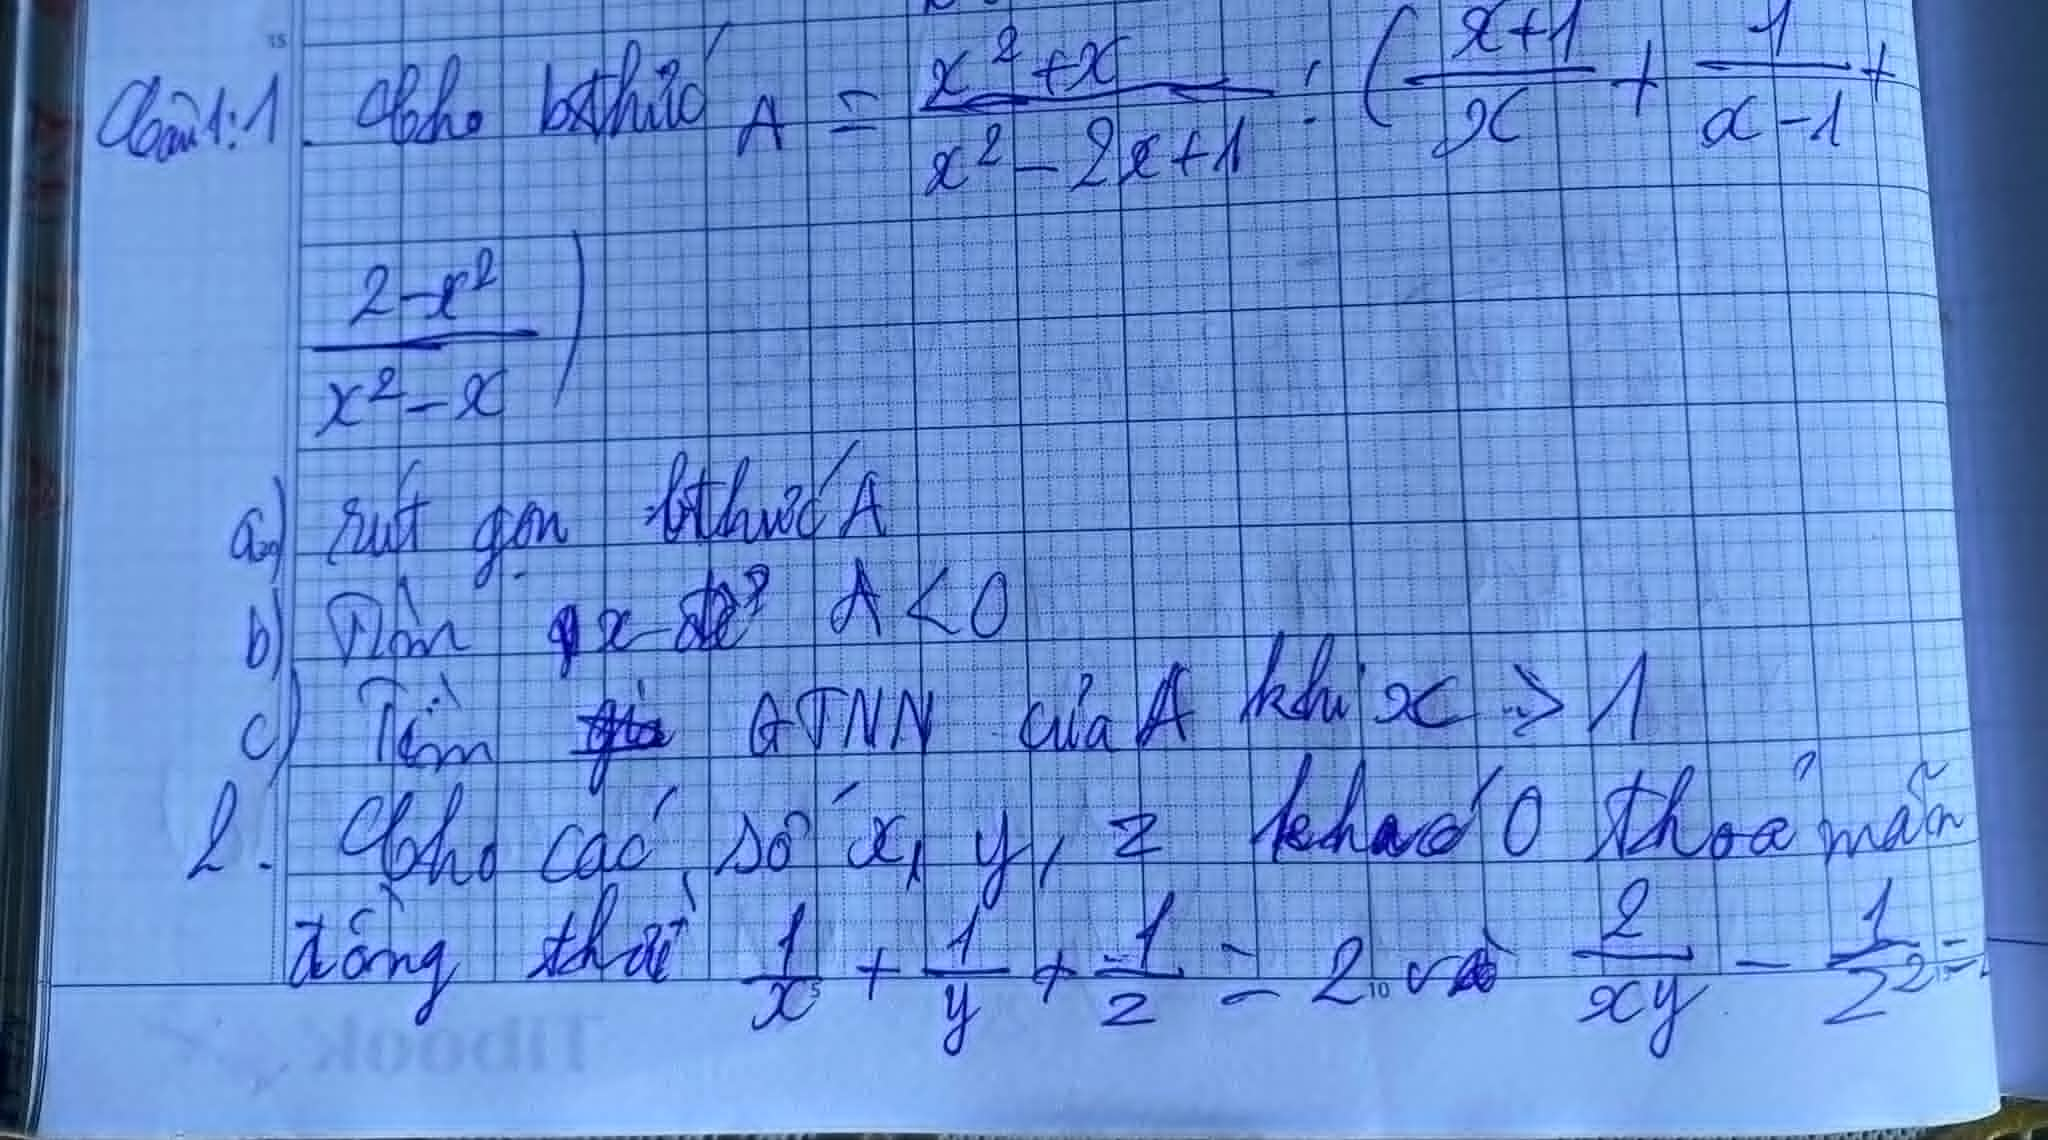 Câu 1: 1. Cho bthức A = \frac{x^2+x}{x^2-2x+1} : ( \frac{x+1}{x} + \frac{1}{x-1} +
\frac{2-x^2}{x^2-x} )
a) rút gọn bthức A
b) Tìm x để A < 0
c) Tìm GTNN của A khi x > 1
2. Cho các số x, y, z khác 0 thoả mãn
đồng thời \frac{1}{x} + \frac{1}{y} + \frac{1}{z} = 2 và \frac{2}{xy} - \frac{1}{z^2} =